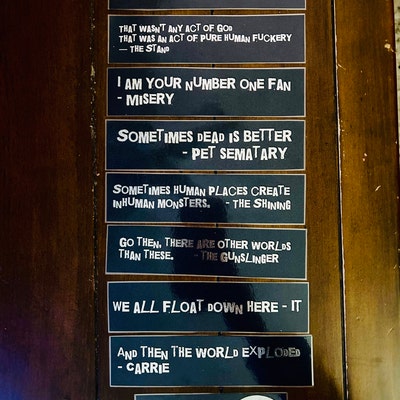 THAT WASN'T ANY ACT OF GOD
THAT WAS AN ACT OF PURE HUMAN FUCKERY
— THE STAND
I AM YOUR NUMBER ONE FAN
- MISERY
SOMETIMES DEAD IS BETTER
- PET SEMATARY
SOMETIMES HUMAN PLACES CREATE
INHUMAN MONSTERS. - THE SHINING
GO THEN, THERE ARE OTHER WORLDS
THAN THESE. - THE GUNSLINGER
WE ALL FLOAT DOWN HERE - IT
AND THEN THE WORLD EXPLODED
- CARRIE